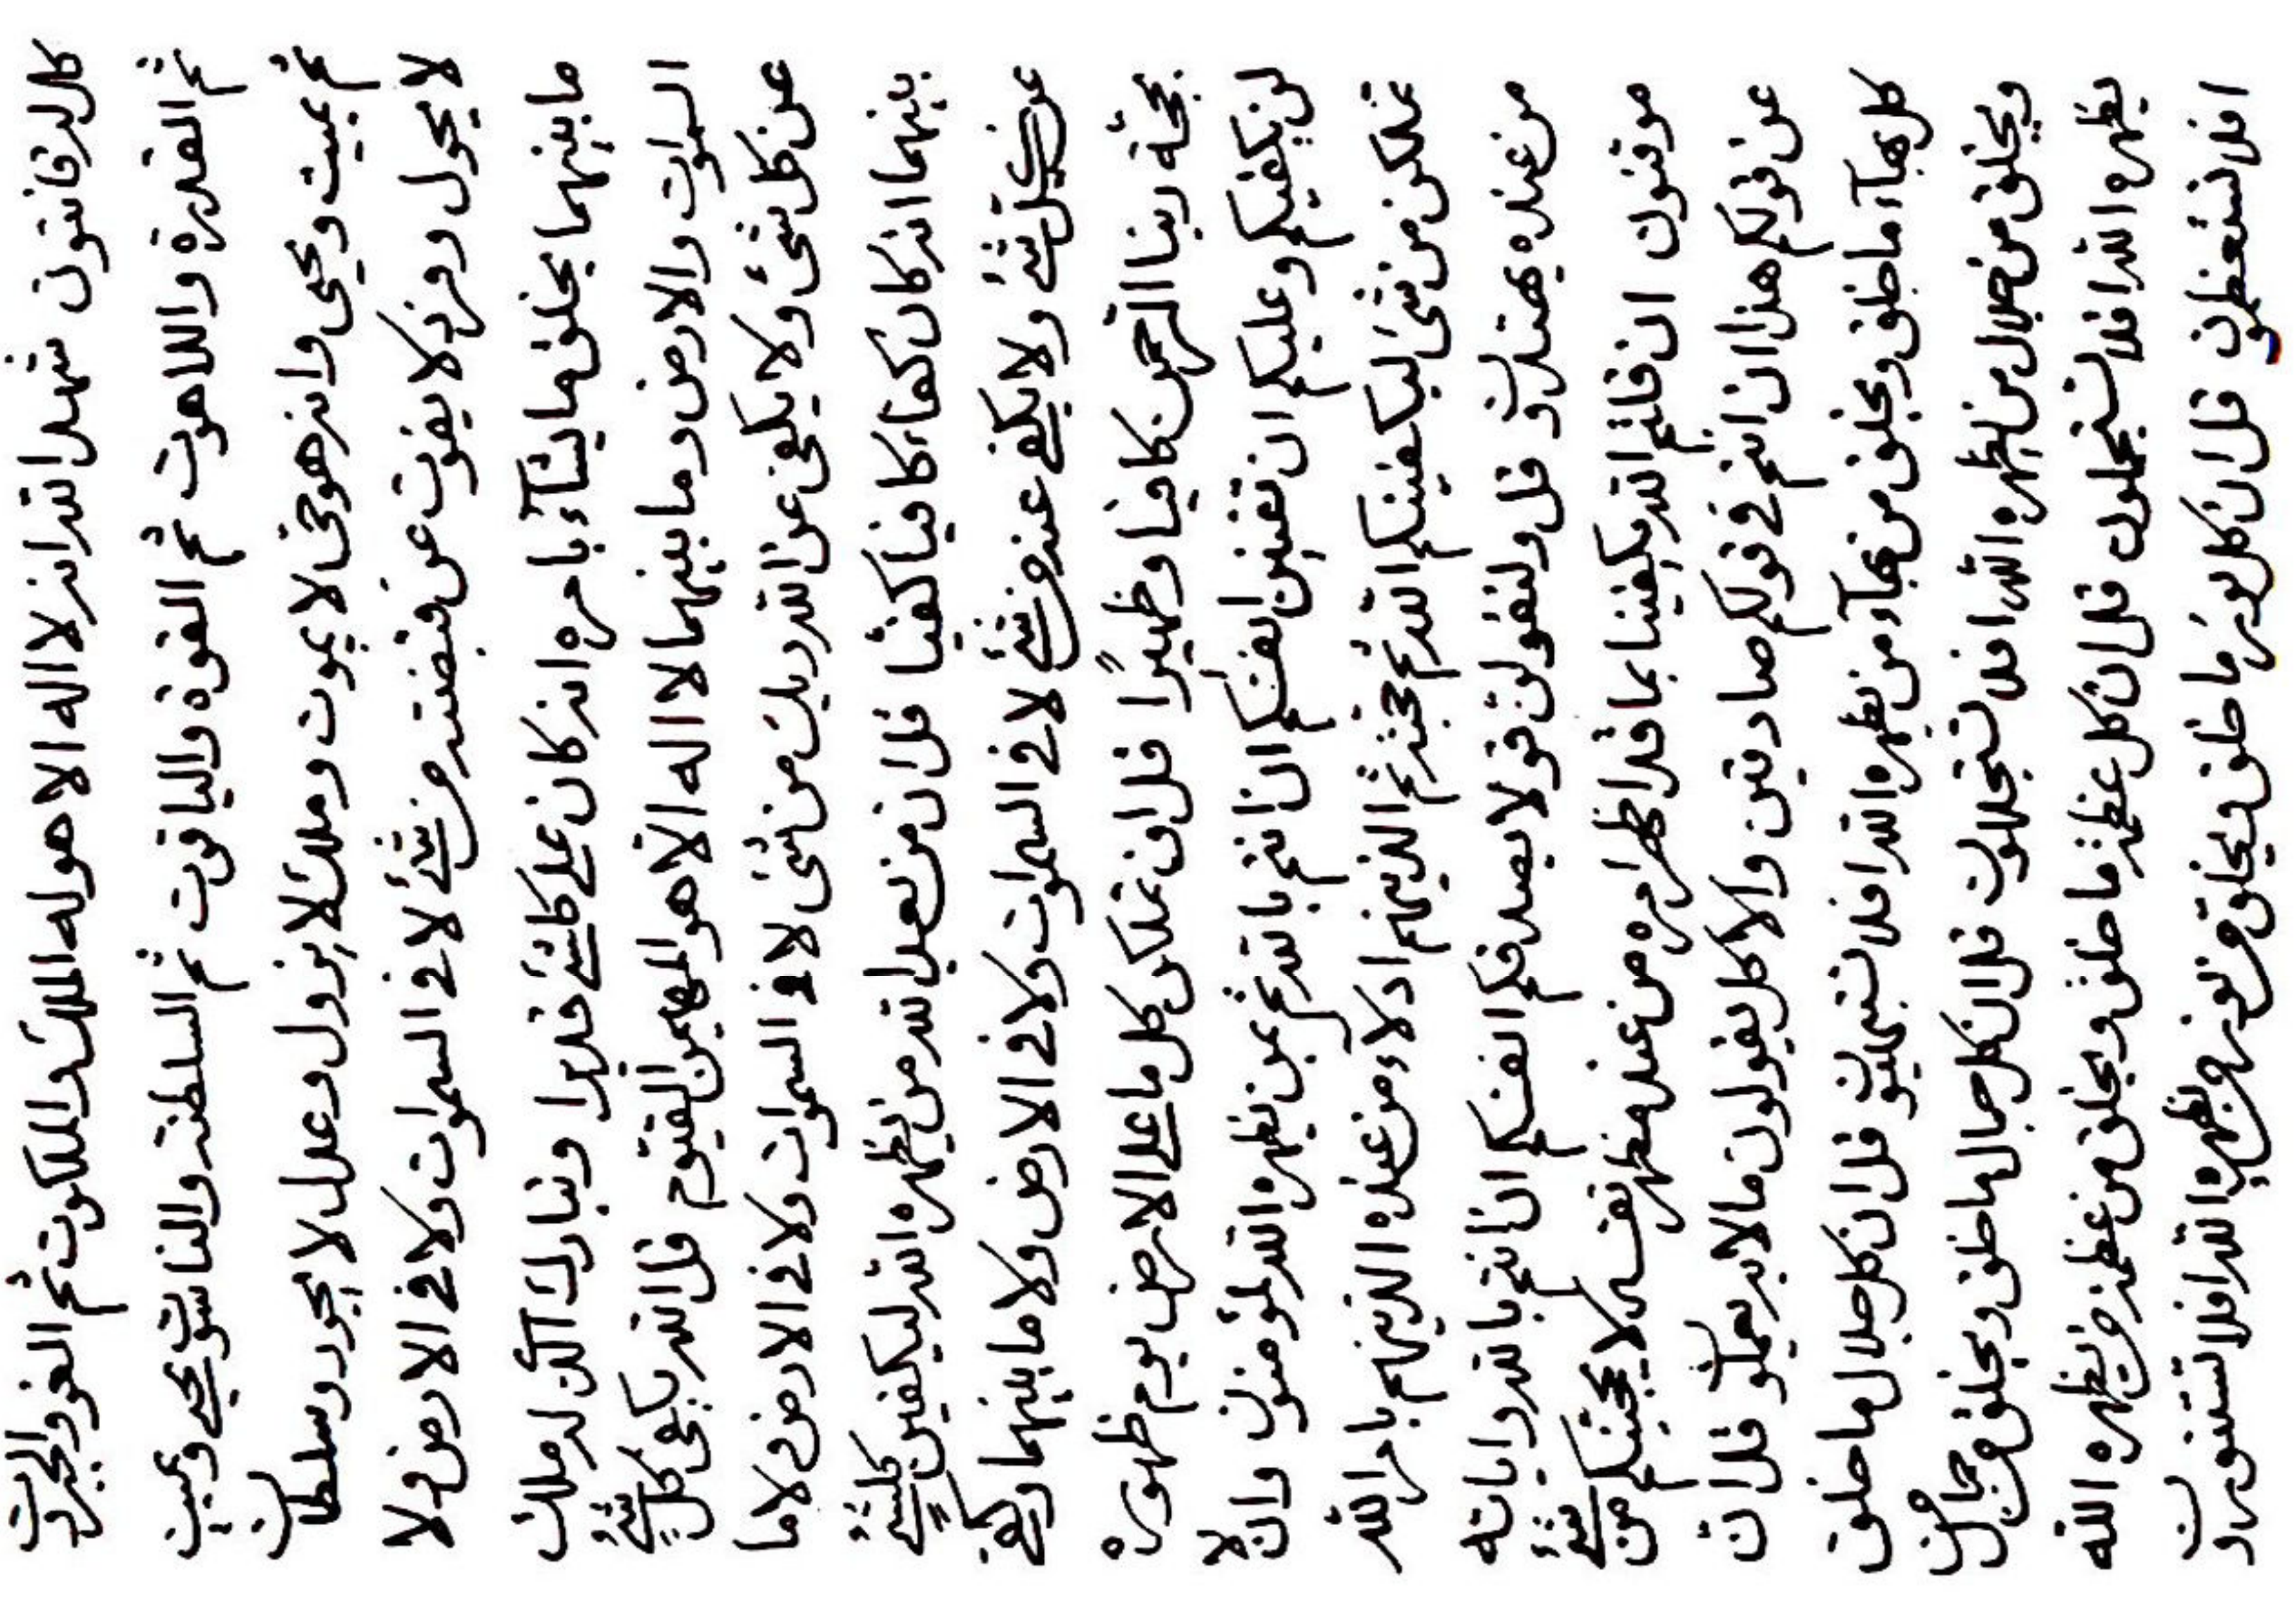 كل له قانتون شهد الله انه لا اله الا هو له الملك والملكوت ثم العز والجبروت
ثم القدرة واللاهوت ثم القوة والياقوت ثم السلطنة والناسوت يحيي ويميت
ثم يميت ويحيى وانه هو حى لا يموت وملك لا يزول وعدل لا يجور وسلطان
لا يحول وفرد لا يفوت عن قبضته من شئ لا فى السموات ولا فى الارض ولا
ما بينهما يخلق ما يشآء بامره انه كان على كلشئ قديرا وتبارك الذى له ملك
السموات والارض وما بينهما لا اله الا هو المهيمن القيوم قل الله يكفى كل شئ
عن كل شئ ولا يكفى عن الله ربك من شئ لا فى السموات ولا فى الارض ولا ما
بينهما انه كان كفآء كافيا كفيا قل ان من بعد الله من يظهره الله ليكفين كلشئ
عن كل شئ ولا يكف عنه من شئ لا فى السموات ولا فى الارض ولا ما بينهما وكفى
بحجة ربنا الرحمن كافيا وظهيرًا قل ان تملكن كل ما على الارض يوم ظهوره
لن يكفيكم وعليكم ان تغنين انفسكم ان انتم بالله ثم بمن يظهره الله لمؤمنون وان لا
تملكن من شئ ليكفينكم الله ثم حجته ثم الذينهم ادلاء من عنده الذينهم بامر الله
من عنده يهتدون قل ولتقولن قولا يصدقكم انفسكم ان انتم بالله واياته
موقنون ان قلتم الله يكفينا بما قد اظهر امره من عند مظهر نفسه لا يحجبنكم من شئ
عن قولكم هذا ان انتم فى قولكم صادقين والا كل يقولون ما لا به يعملون قل ان
كل بهآء ما خلق ويخلق من بهآء من يظهره الله افلا تبتهيون قل ان كل جلال ما خلق
ويخلق من جلال من يظهره الله افلا تستجللون قل ان كل جمال ما خلق ويخلق من جمال من
يظهره الله افلا تستجملون قل ان كل عظمة ما خلق ويخلق من عظمة من يظهره الله
افلا تستعظمون قل ان كل نور ما خلق ويخلق من نور من يظهره الله افلا تستنورون